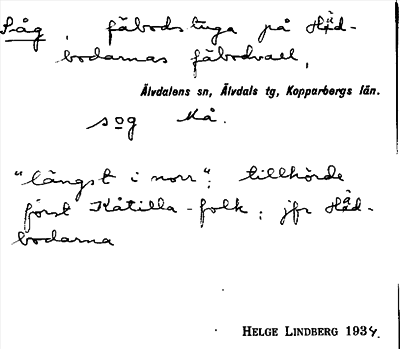 Såg, fäbodstuga på Häd-
bodarnas fäbodvall,
Älvdalens sn, Älvdals tg, Kopparbergs län.
sog Kå.
"längst i norr"; tillhörde
först Kåtilla-folk; jfr Häd-
bodarna
HELGE LINDBERG 1934.